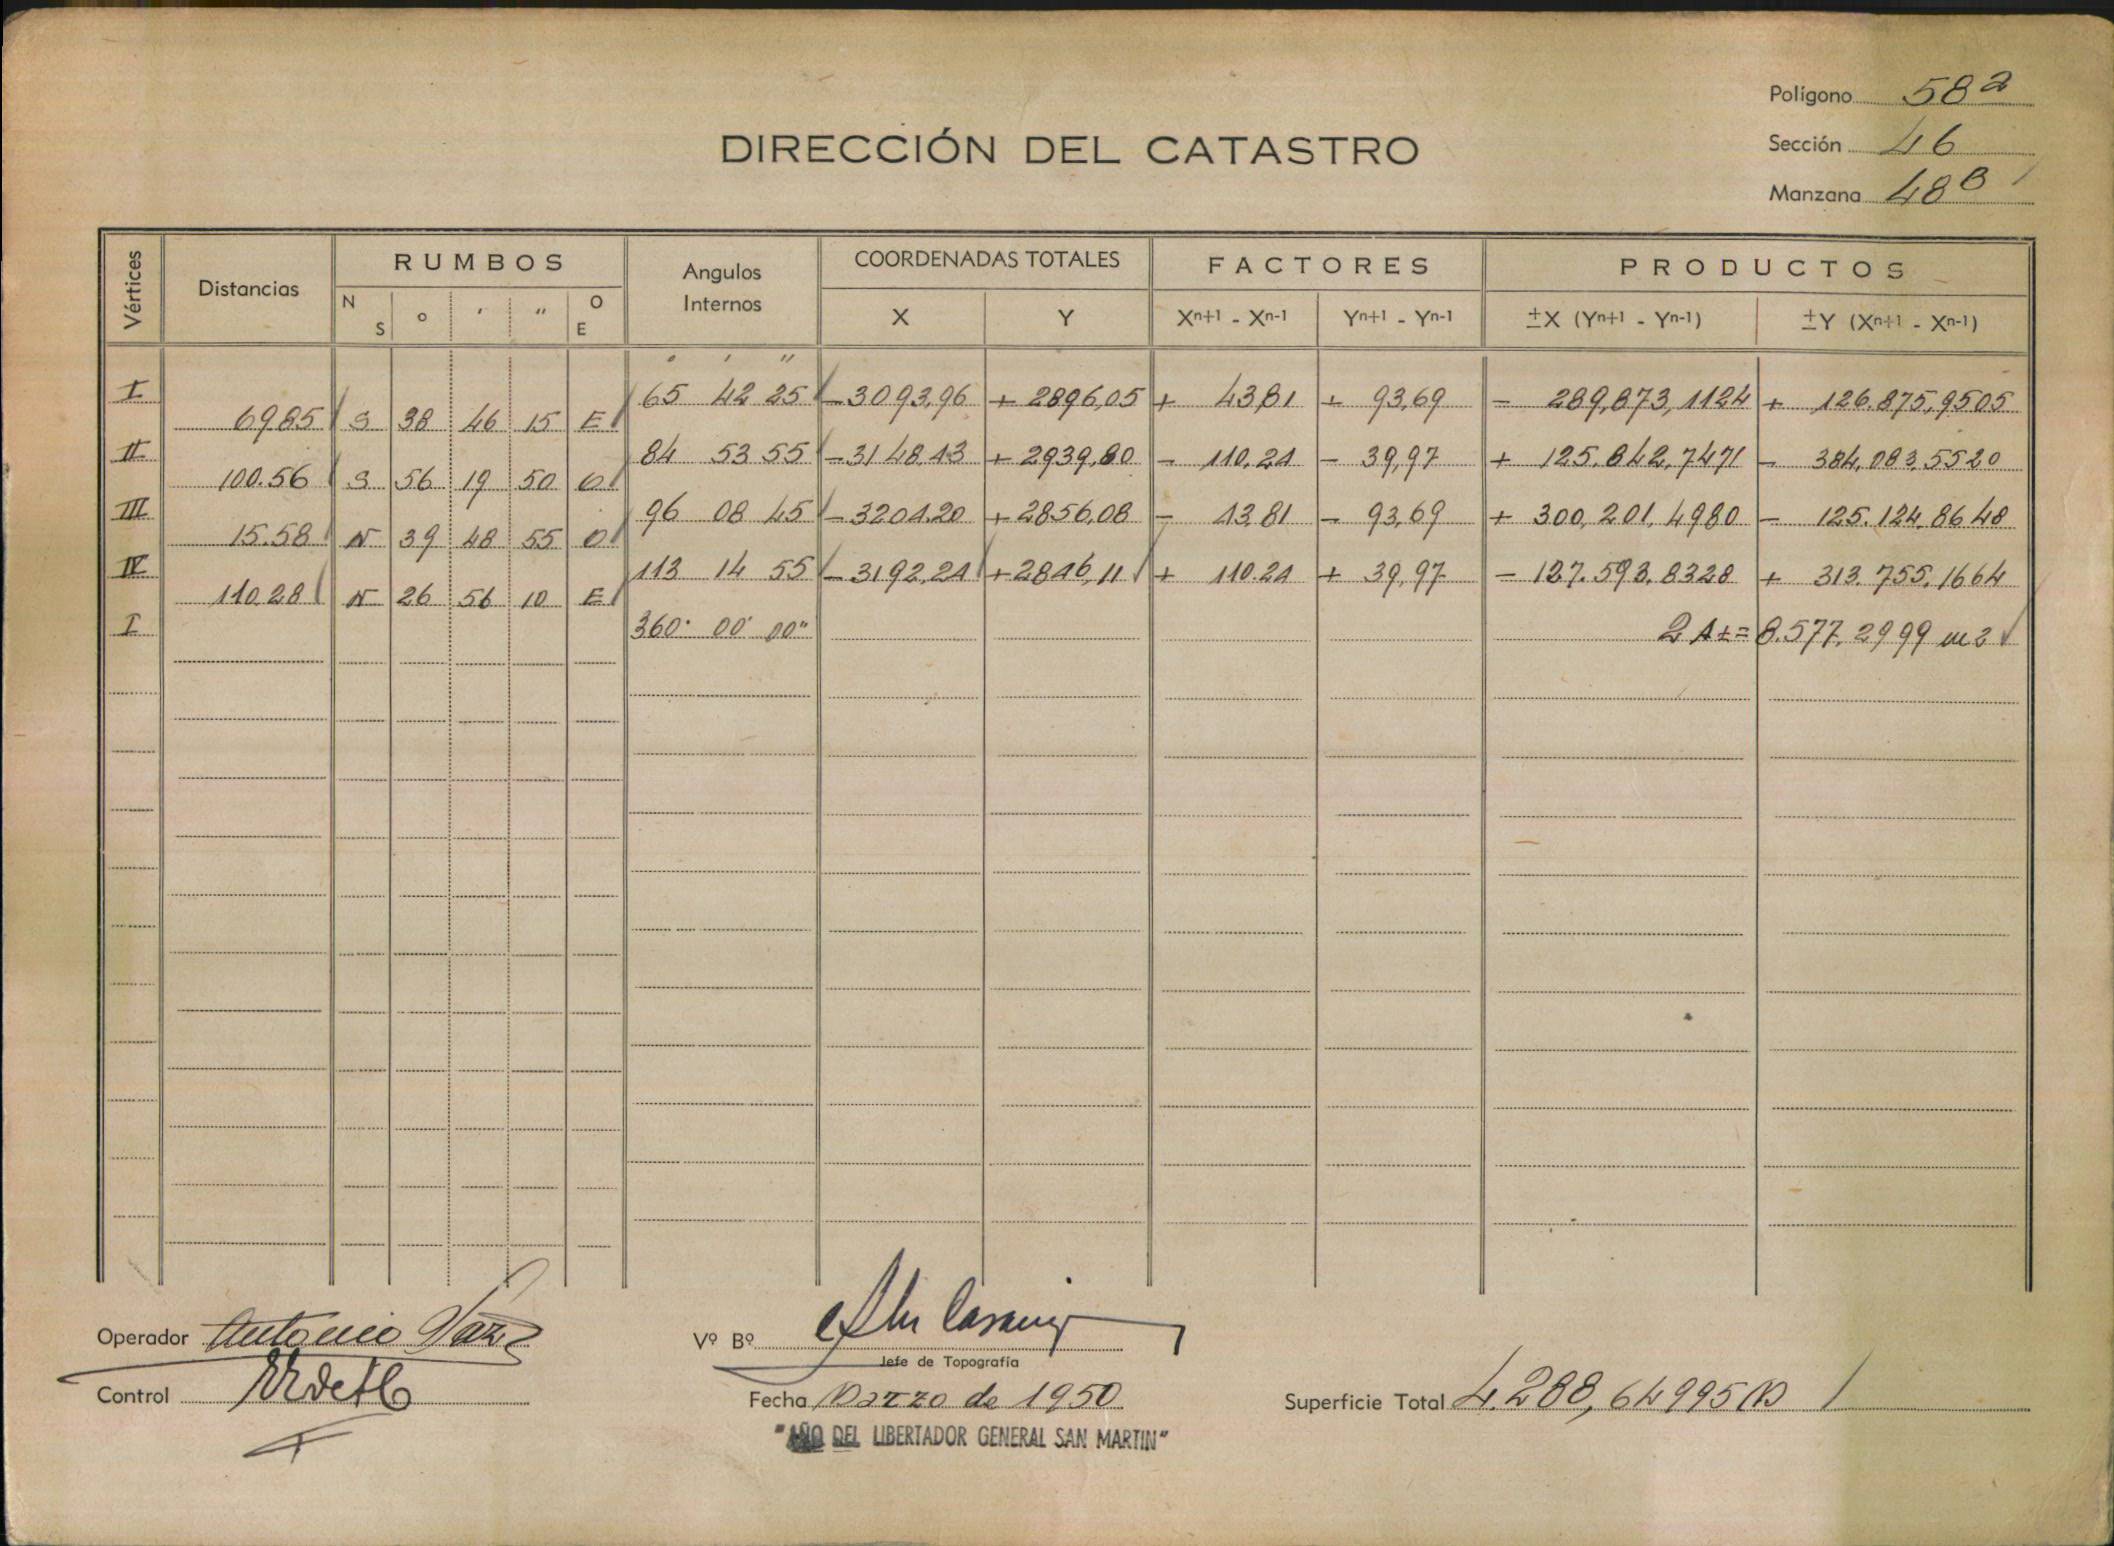 Polígono 58 a
DIRECCIÓN DEL CATASTRO
Sección 46
Manzana 48 B
Vértices Distancias RUMBOS Angulos Internos COORDENADAS TOTALES FACTORES PRODUCTOS
N S o ' " O E X Y Xn+1 - Xn-1 Yn+1 - Yn-1 ±X (Yn+1 - Yn-1) ±Y (Xn+1 - Xn-1)
° ' "
I 65 42 25 -3093,96 +2896,05 + 43,81 + 93,69 - 289,873,1124 + 126.875,9505
69.85 S 38 46 15 E
II 84 53 55 -3148,43 +2939,80 - 110.24 - 39,97 + 125.842,7471 - 324,083,5520
100.56 S 56 19 50 O
III 96 08 45 -3204.20 +2856,08 - 43.81 - 93,69 + 300,201,4980 - 125.124,8648
15.58 N 39 48 55 O
IV 113 14 55 -3192,24 +2846,11 + 110.24 + 39,97 - 127.593,8328 + 313.755,1664
110.28 N 26 56 10 E
I 360° 00' 00" 2 A ±= 8.577,2999 m2
Operador Antonio
Vº Bº
Jefe de Topografía
Control
Fecha Marzo de 1950
Superficie Total 4.288,64995
"AÑO DEL LIBERTADOR GENERAL SAN MARTIN"